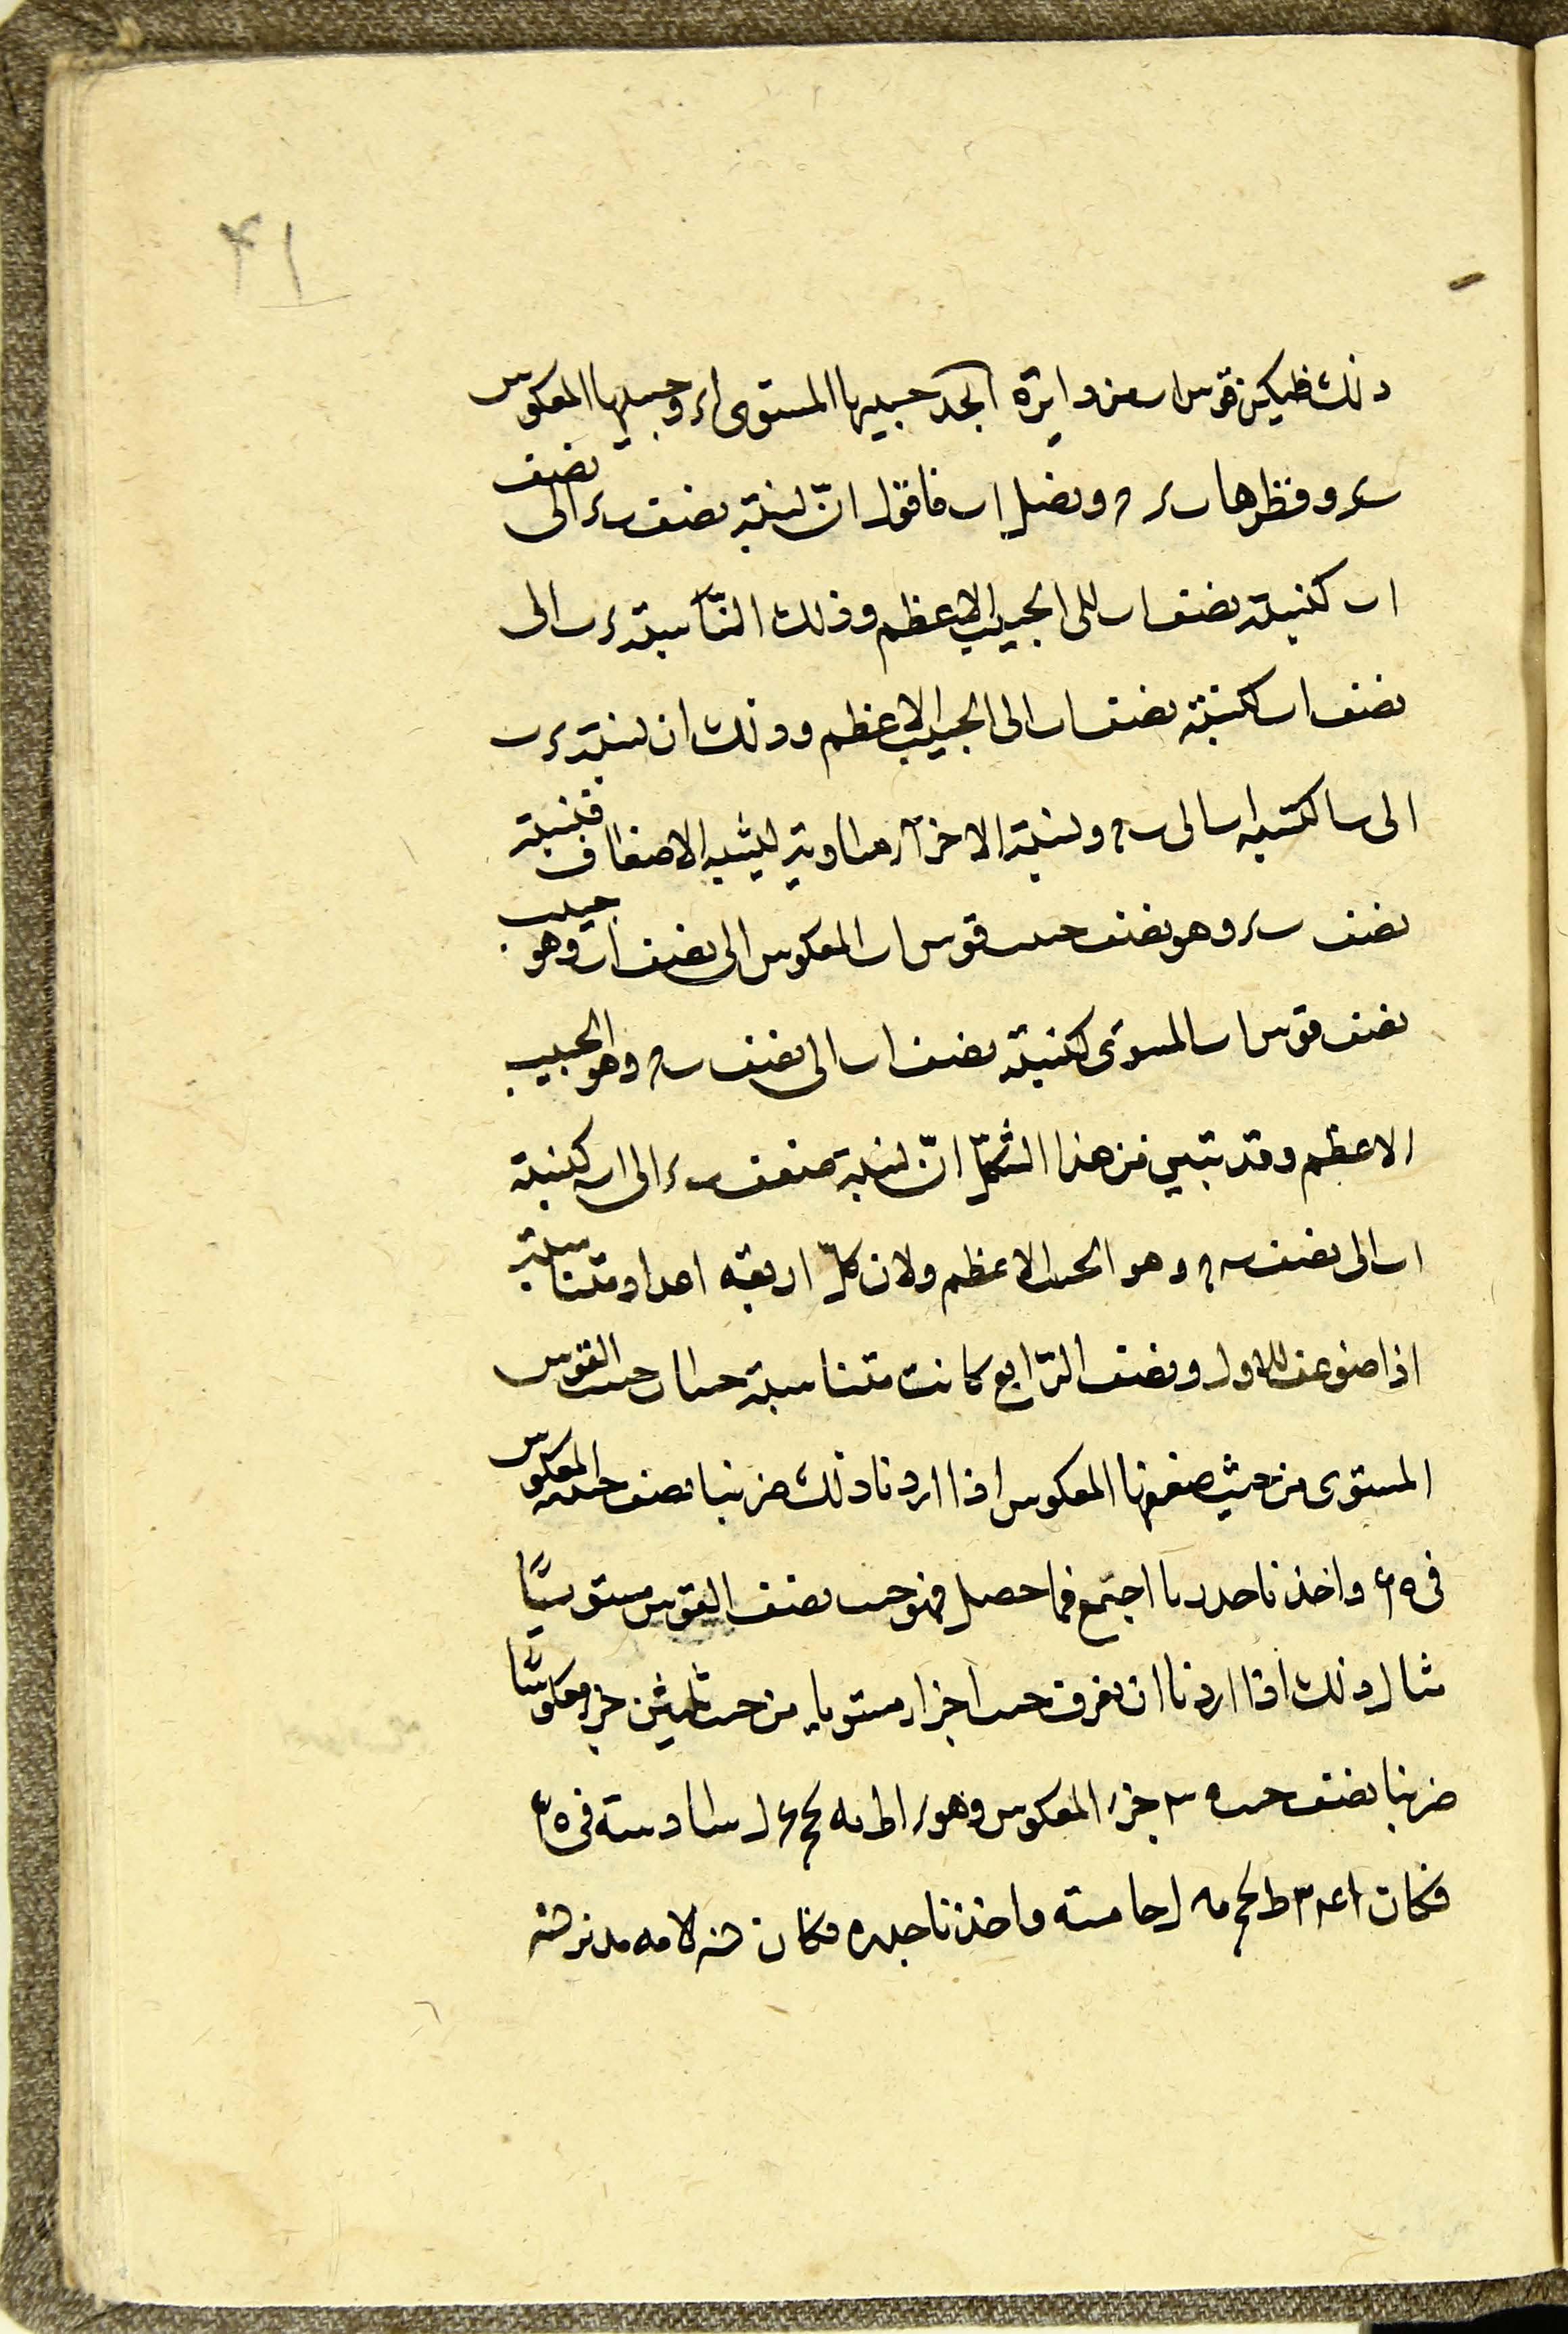 ۴۱
ذلك فليكن قوس اب من دايرة ابجد جيبها المستوى ار وجيبها المعكوس
بر وقطرها ب ونصل اب فاقول انّ نسبة نصف بر الى نصف
اب كنسبة نصف اب الى الجيب الاعظم وذلك
نصف اب كنسبة نصف اب الى الجيب الاعظم وذلك ان نسبة رب
الى با كنسبة اب الى ونسبة الاخرآء مساوية لنسبة الاضعاف فنسبة
نصف بر وهو نصف جيب قوس اب المعكوس الى نصف اب وهو جيب
نصف قوس اب المستوى كنسبة نصف اب الى نصف وهو الجيب
الاعظم وقد تبين من هذا الشكل انّ نسبة ضعف بر الى اب كنسبة
اب الى نصف وهو الجيب الاعظم ولان كلّ اربعة اعداد متناسبة
اذا ضوعف الاول ونصف الرّابع كانت متناسبة جيب القوس
المستوى من حيث ضعفها المعكوس اذا اردنا ذلك ضربنا نصف جيبه المعكوس
فى واخذنا جذر ما اجتمع فما حصل فهو جيب نصف القوس مستويًا
مثال ذلك اذا اردنا ان نعرف جيب اجزاء مستويا من جيب ثلثين جزء معكوسًا
ضربنا نصف جيب جزء المعكوس وهو سادسة فى
فكان خامسة واخذنا جذره فكان